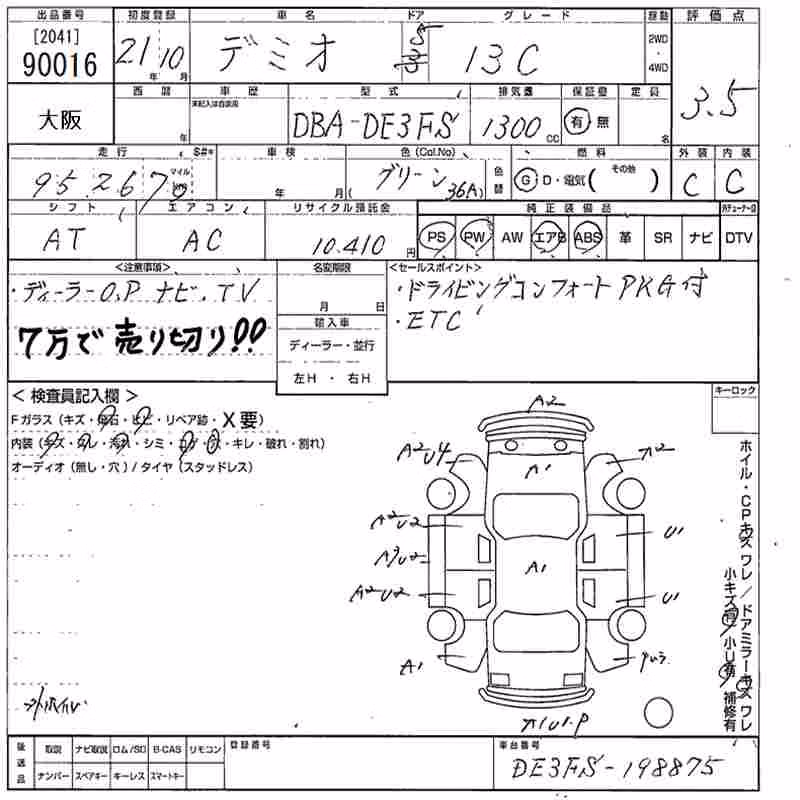 出品番号 初度登録 車名 ドア グレード 駆動 評価点
[2041] 90016 21年10月 デミオ 5 13C 2WD・4WD 3.5
大阪 西暦 年 車歴 未記入は自家用 型式 DBA-DE3FS 排気量 1300cc 保証書 有 無 定員 名
走行 S#* 車検 色(Col.No) 燃料 外装 内装
95,267 マイル 年 月 グリーン (36A) 色替 G D・電気( その他 ) C C
シフト エアコン リサイクル預託金 純正装備品
AT AC 10,410円 PS PW AW エアB ABS 革 SR ナビ DTV
<注意事項> 名変期限 <セールスポイント>
・ディーラーO.P ナビ.TV 月 日 ・ドライビングコンフォートPKG付
7万で売り切り!! 輸入車 ・ETC
ディーラー・並行
左H ・ 右H
< 検査員記入欄 > キーロック
Fガラス(キズ・飛石・ヒビ・リペア跡・X要)
内装(キズ・スレ・汚れ・シミ・コゲ・穴・キレ・破れ・割れ)
オーディオ(無し・穴)/タイヤ(スタッドレス)
A2
A2U4 A1 A2
A2U2 U1
A3U2 A1
A2U2 U1
A1
ホイル・CPキズ ワレ/ドアミラーキズ ワレ
小キズ有 小U有 補修有
後送品 取説 ナビ取説 ロム/SD B-CAS リモコン 登録番号 車台番号
ナンバー スペアキー キーレス スマートキー DE3FS-198875